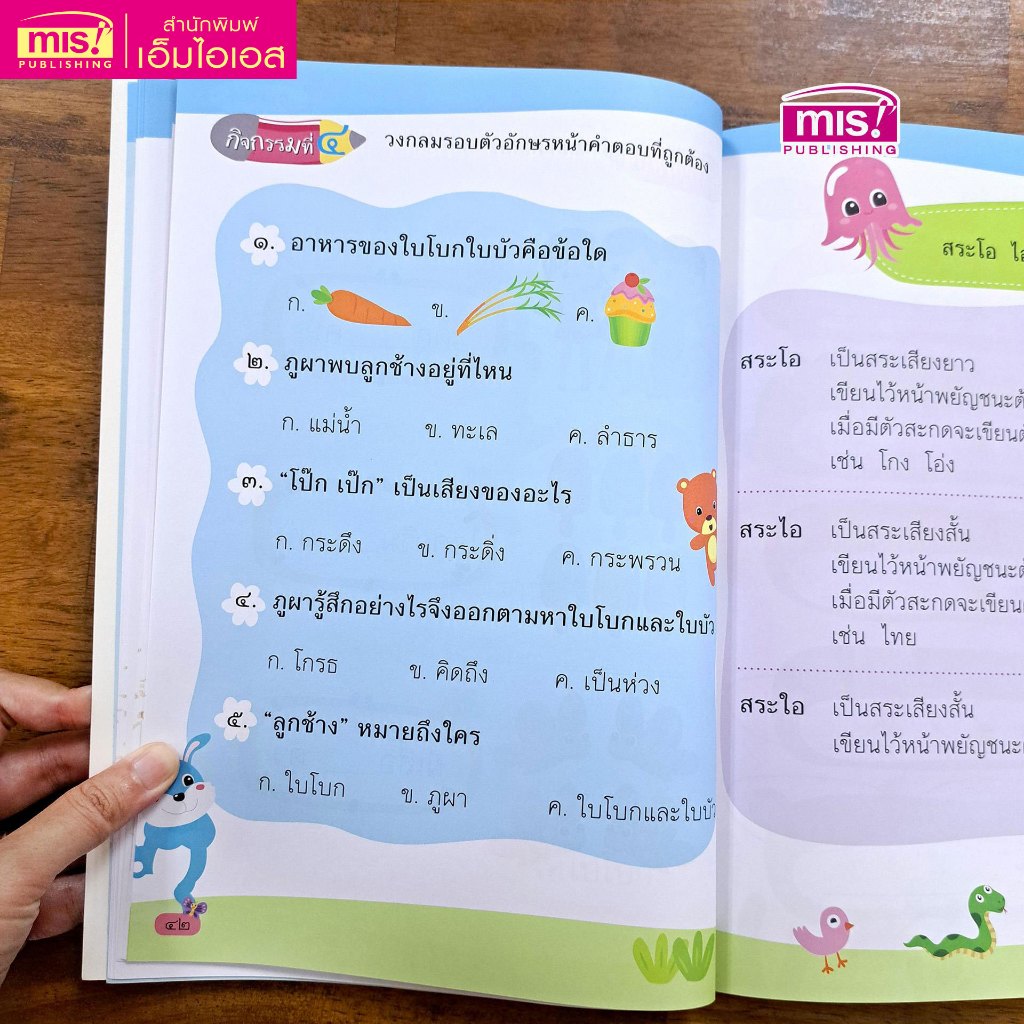 mis!
PUBLISHING
สำนักพิมพ์
เอ็มไอเอส
mis!
PUBLISHING
กิจกรรมที่ ๔
วงกลมรอบตัวอักษรหน้าคำตอบที่ถูกต้อง
๑. อาหารของใบโบกใบบัวคือข้อใด
ก. ข. ค.
๒. ภูผาพบลูกช้างอยู่ที่ไหน
ก. แม่น้ำ ข. ทะเล ค. ลำธาร
๓. “โป๊ก เป๊ก” เป็นเสียงของอะไร
ก. กระดึง ข. กระดิ่ง ค. กระพรวน
๔. ภูผารู้สึกอย่างไรจึงออกตามหาใบโบกและใบบัว
ก. โกรธ ข. คิดถึง ค. เป็นห่วง
๕. “ลูกช้าง” หมายถึงใคร
ก. ใบโบก ข. ภูผา ค. ใบโบกและใบบัว
๔๒
สระโอ
สระโอ เป็นสระเสียงยาว
เขียนไว้หน้าพยัญชนะ
เมื่อมีตัวสะกดจะเขียน
เช่น โกง โอ่ง
สระไอ เป็นสระเสียงสั้น
เขียนไว้หน้าพยัญชนะ
เมื่อมีตัวสะกดจะเขียน
เช่น ไทย
สระใอ เป็นสระเสียงสั้น
เขียนไว้หน้าพยัญชนะ